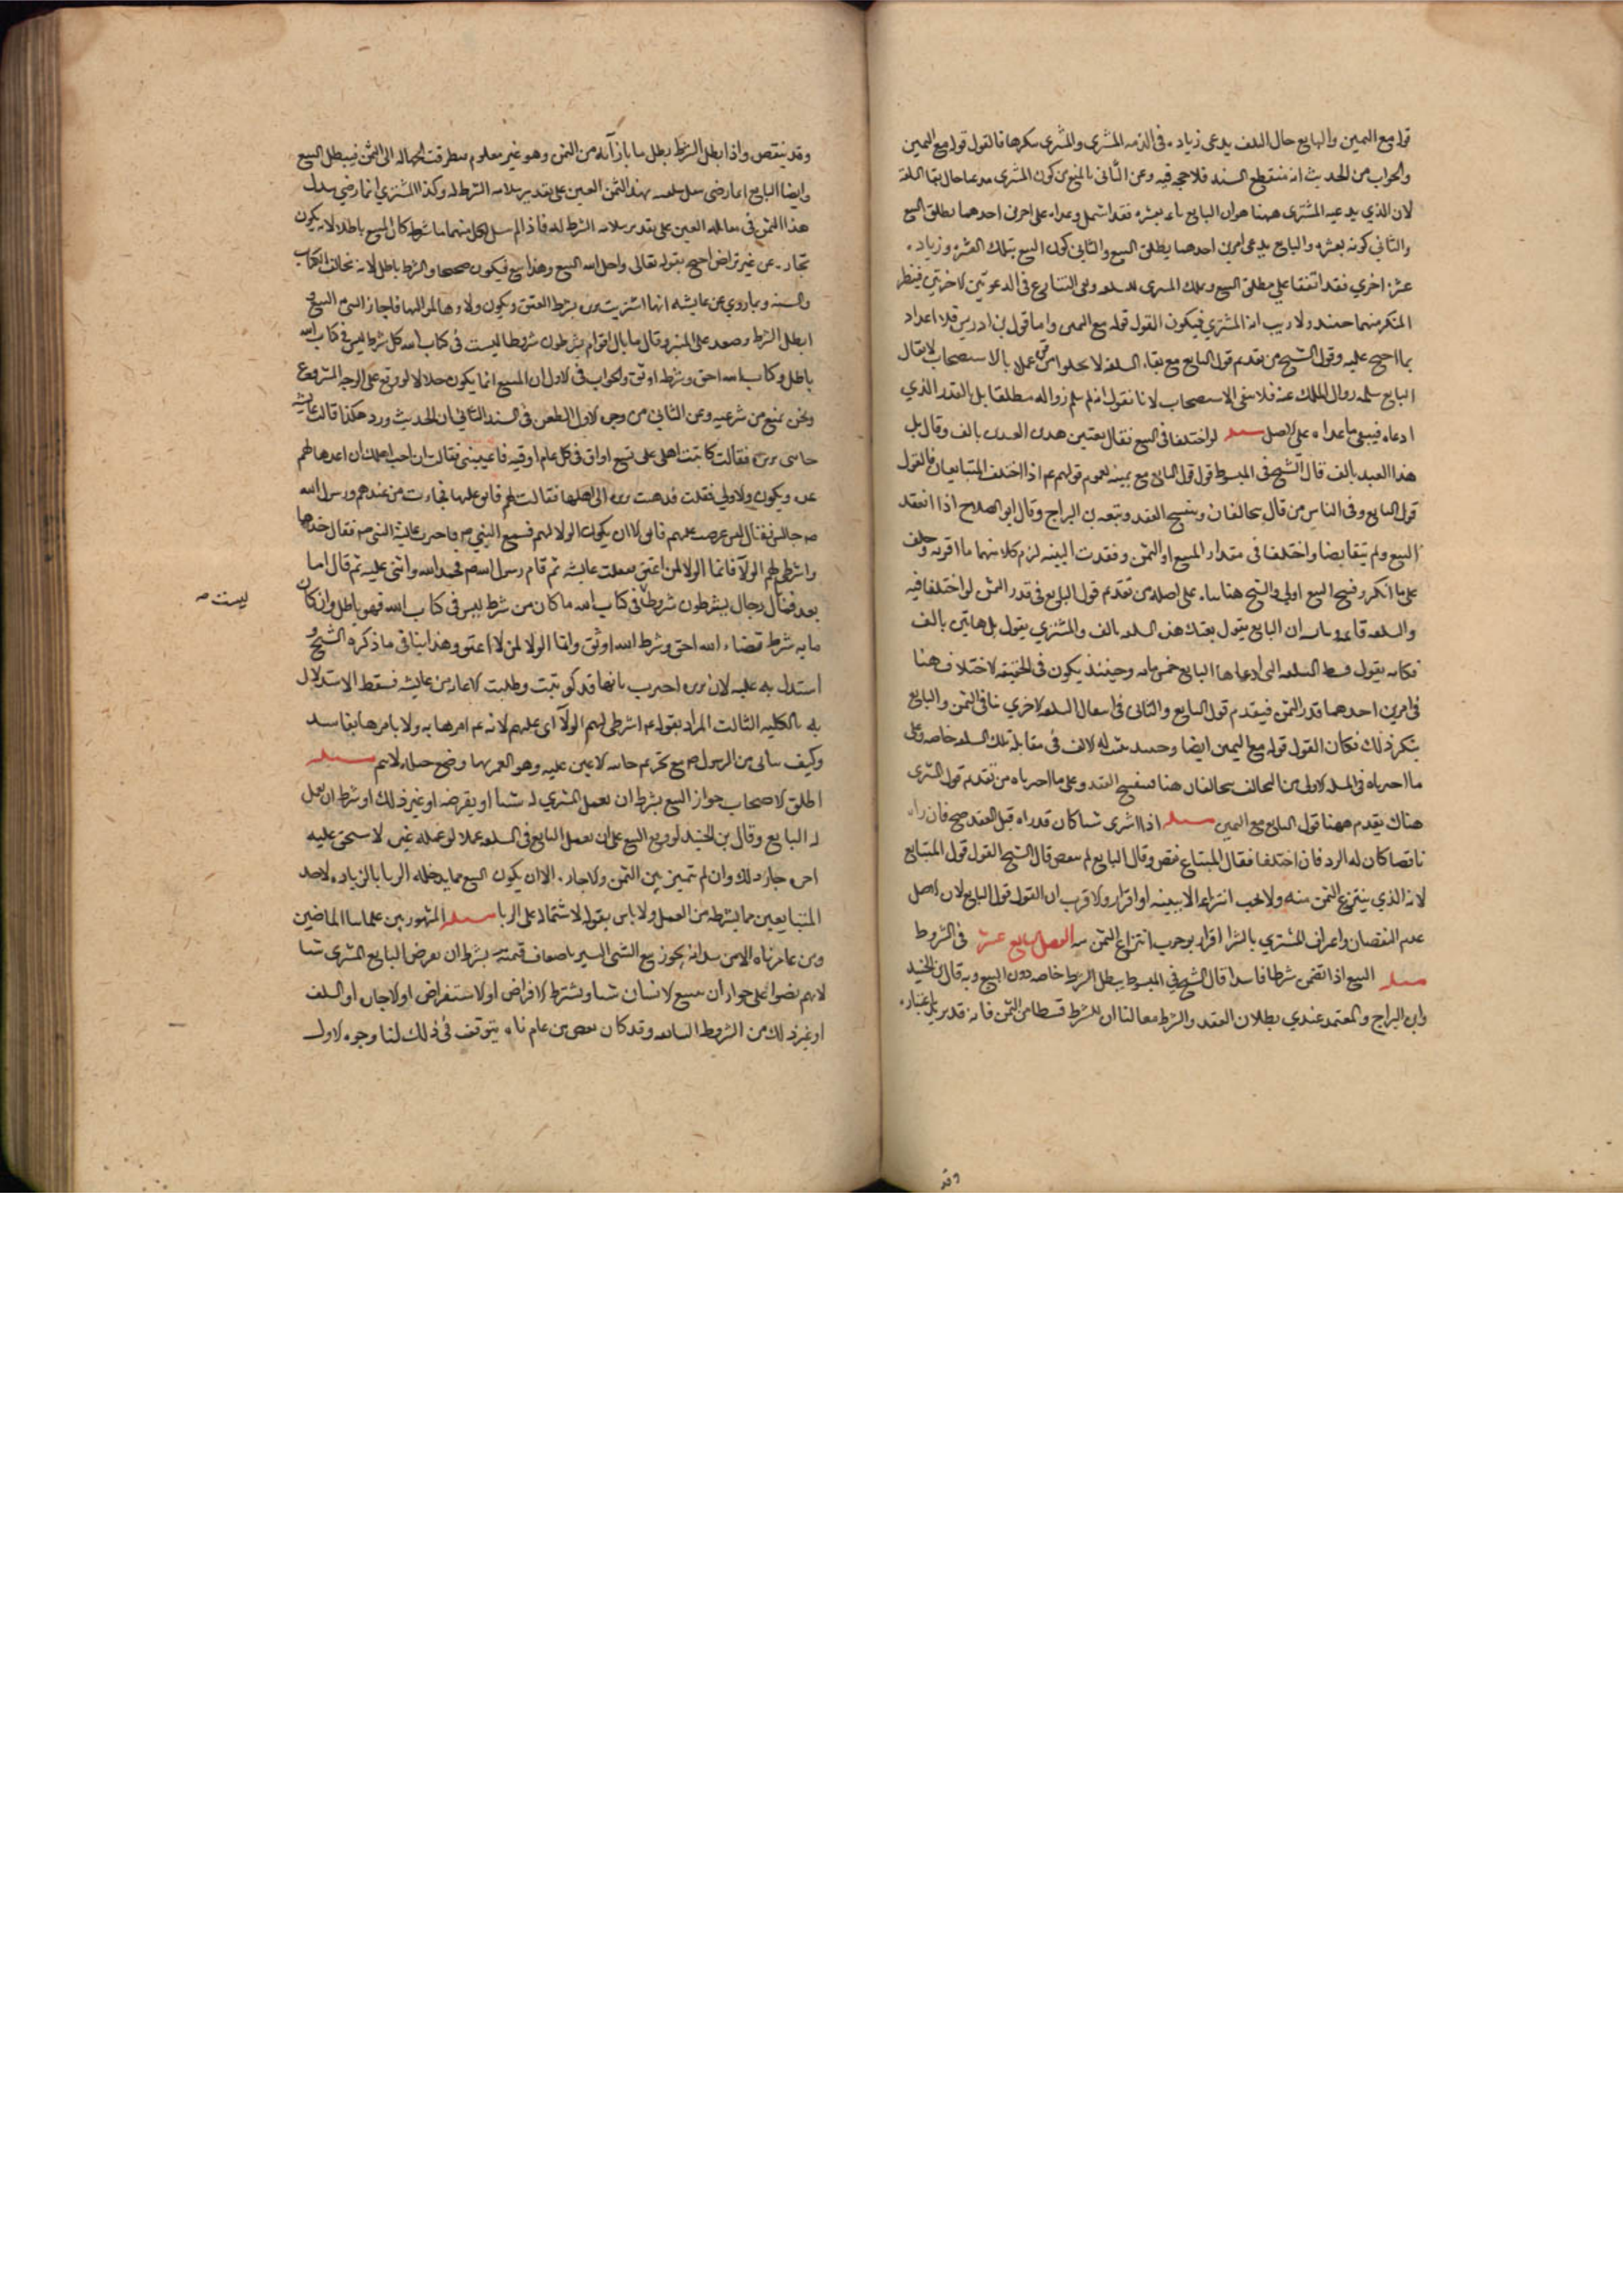 قوله مع اليمين والبايع حال التلف يدعى زيادة فى الذمه المشترى والمشترى ينكرها فالقول قوله مع اليمين
والجواب من الحديث انه منقطع السند فلا حجه فيه وعن الثانى بالمنع من كون المشترى مدعيا حال بقا السلعه
لان الذي يدعيه المشترى ههنا هو ان البايع باعه بعشره فقد اشتمل دعواه على امرين احدهما مطلق البيع
والثاني كونه بعشره والبايع يدعى امرين احدهما مطلق البيع والثاني كون البيع بتلك العشره وزيادة
عشره اخري فقد اتفقا علي مطلق البيع وملك المشترى للسلعه وبقى التنازع فى الدعوتين الاخرتين فينظر
المنكر منهما حينئذ ولا ريب انه المشتري فيكون القول قوله مع اليمين واما قول بن ادريس فلا اعداد
بما احتج عليه وقول الشيخ من تقديم قول البايع مع بقاء السلعه لا يخلوا من قوه عملا بالاستصحاب لايقال
البايع سلم زوال الملك عنه فلا يبقى الاستصحاب لانا نقول انه لم يسلم زواله مطلقا بل بالقدر الذي
ادعاه فيبقى ما عداه على الاصل مسله لو اختلفا فى البيع فقال بعتنى هذين العبدين بالف وقال بل
هذا العبد بالف قال الشيخ فى المبسوط قول قول البايع مع يمينه لعموم قولهم عم اذا اختلف المتبايعان فالقول
قول البايع وفى الناس من قال يتحالفان وينفسخ العقد وتبعه بن البراج وقال ابو الصلاح اذا انعقد
البيع ولم يتقابضا واختلفا فى مقدار المبيع او الثمن وفقدت البينه لزم كلا منهما ما اقر به وحلف
على ما انكر وفسخ البيع اولي والشيخ هنا بناه على اصله من تقدم قول البايع فى قدر الثمن لو اختلفا فيه
والسلعه قائمه وبيانه ان البايع يقول بعتك هذه السلعه بالف والمشتري يقول بل هاتين بالف
فكانه يقول قسط السلعه التى ادعاها البايع خمس مايه وحينئذ يكون فى الحقيقه الاختلاف هنا
فى امرين احدهما قدر الثمن فيقدم قول البايع والثانى فى انتقال السلعه الاخري نافى الثمن والبايع
ينكر ذلك فكان القول قوله مع اليمين ايضا وحينئذ يثبت له الالف فى مقابلة تلك السلعه خاصه وعلى
ما اخترناه فى المسله الاولى من التحالف يتحالفان هنا وينفسخ العقد وعلى ما اخترناه من تقدم قول المشترى
هناك يقدم ههنا قول البايع مع اليمين مسله اذا اشترى شيئا كان قد راه قبل العقد صح فان راه
ناقصا كان له الرد فان اختلفا فقال المبتاع نقص وقال البايع لم ينقص قال الشيخ القول قول المبتاع
لانه الذي ينتزع الثمن منه ولا يجب انتزاعه الا ببينه او اقرار والاقرب ان القول قول البايع لان الاصل
عدم النقصان واعتراف المشتري بالشرا اقرار يوجب انتزاع الثمن منه الفصل السابع عشر فى الشروط
مسله البيع اذا تضمن شرطا فاسدا قال الشيخ في المبسوط يبطل الشرط خاصه دون البيع وبه قال بن الجنيد
وابن البراج والمعتمد عندي بطلان العقد والشرط معا لنا ان للشرط قسطا من الثمن فانه قد يزيد باعتباره
وقد
وقد ينقص واذا بطل الشرط بطل ما بازآئه من الثمن وهو غير معلوم فتطرقت الجهاله الى الثمن فيبطل البيع
وايضا البايع انما رضى بنقل سلعته بهذا الثمن المعين على تقدير سلامه الشرط له وكذا المشترى انما رضي ببذل
هذا الثمن فى مقابله العين على تقدير سلامه الشرط له فاذا لم يسلم لكل منهما ما شرطه كان المبيع باطلا لانه يكون
تجارة عن غير تراض احتج بقوله تعالى واحل الله البيع وهذا بيع فيكون صحيحا والشرط باطل لانه يخالف الكتاب
والسنه وبما روي عن عايشه انها اشترت بريره بشرط العتق ويكون ولاوها لمواليها فاجاز النبى البيع
ابطل الشرط وصعد على المنبر وقال ما بال اقوام يشرطون شروطا ليست فى كتاب الله كل شرط ليس فى كتاب الله
باطل وكتاب الله احق وشرطه اوثق والجواب فى الاول ان المبيع انما يكون حلالا لو وقع على الوجه المشروع
ونحن نمنع من شرعيه وعن الثانى من وجوه الاول الطعن فى السند الثانى ان الحديث ورد هكذا قالت عايشه
جاءتنى بريره فقالت كاتبت اهلى على تسع اواق فى كل عام اوقيه فاعينينى فقالت ان احب اهلك ان اعدها لهم
عده ويكون ولاوك لى فعلت فذهبت بريره الى اهلها فقالت لهم فابو عليها فجاءت من عندهم ورسول الله
ص جالس فقال انى عرضت عليهم فابو الا ان يكون الولا لهم فسمع النبي ص فاخبرت عايشه النبى ص فقال خذها
واشرطى لهم الولآ فانما الولا لمن اعتق ففعلت عايشه ثم قام رسول الله ص فحمد الله واثنى عليه ثم قال اما
بعد فما بال رجال يشرطون شروطا فى كتاب الله ما كان من شرط ليس فى كتاب الله فهو باطل وان كان
ليست ص
مايه شرط قضاء الله احق وشرط الله اوثق وانما الولا لمن اعتق وهذا ينافى ما ذكره الشيخ و
استدل به عليه لان بريره اخبرت بانها قد كوتبت وطلبت الاعانه من عايشه فسقط الاستدلال
به بالكليه الثالث المراد بقوله عم اشرطى لهم الولآ اى عليهم لانه عم امرها به ولا يامرها بفاسد
وكيف يتاتى من الرسول ص مع تحريم خاينه الاعين عليه وهو الغمز بها وضح حيله لاتم مسله
اطلق الاصحاب جواز البيع بشرط ان يعمل المشتري له شيئا او يقرضه او غير ذلك او شرط ان يعمل
له البايع وقال بن الجنيد لو وقع البيع على ان يعمل البايع فى السلعه عملا لو عمله غيره لاستحق عليه
اجره جاز ذلك وان لم يتميز بين الثمن والاجاره الا ان يكون البيع مما يدخله الربا بالزيادة لاحد
المتبايعين مما يشرطه من العمل ولا باس بقوله لاشتماله على الربا مسله المشهور بين علماينا الماضين
ومن عاصرناه الا من شذ انه يجوز بيع الشئ اليسير باضعاف قيمته بشرط ان يقرض البايع المشترى شيئا
لانهم نصوا على جواز ان يبيع الانسان شيئا ويشترط الاقراض او الاستقراض او الاجاره او السلف
او غير ذلك من الشروط السايغه وقد كان بعض من عاصرناه يتوقف فى ذلك لنا وجوه الاول